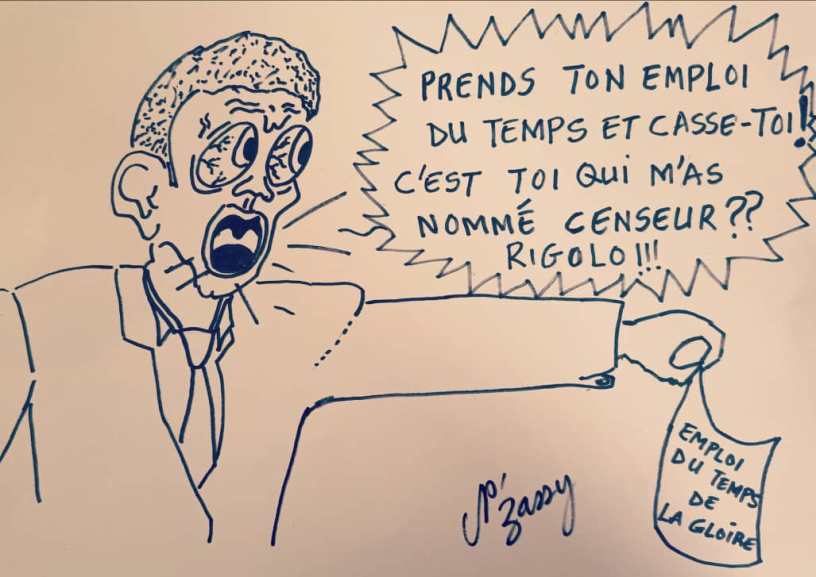 PRENDS TON EMPLOI
DU TEMPS ET CASSE-TOI!
C'EST TOI QUI M'AS
NOMMÉ CENSEUR??
RIGOLO!!!
EMPLOI
DU TEMPS
DE
LA GLOIRE
N'zassy